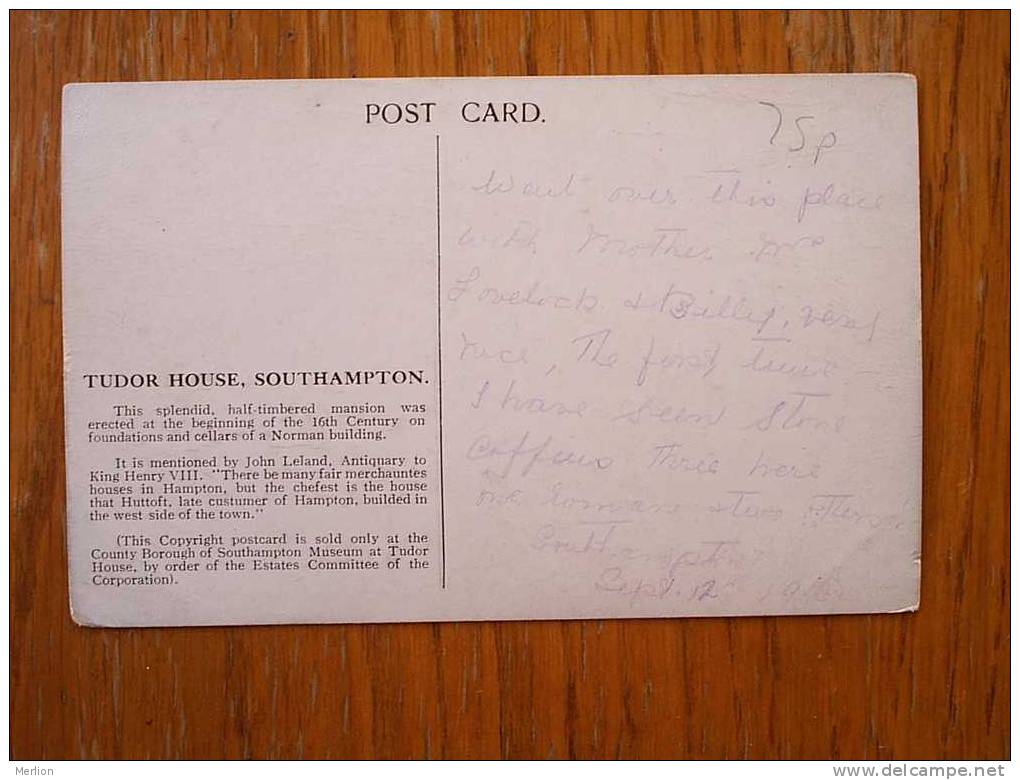 POST CARD.
75p
TUDOR HOUSE, SOUTHAMPTON.
This splendid, half-timbered mansion was
erected at the beginning of the 16th Century on
foundations and cellars of a Norman building.
It is mentioned by John Leland, Antiquary to
King Henry VIII. "There be many fair merchauntes
houses in Hampton, but the chefest is the house
that Huttoft, late custumer of Hampton, builded in
the west side of the town."
(This Copyright postcard is sold only at the
County Borough of Southampton Museum at Tudor
House, by order of the Estates Committee of the
Corporation).
Went over this place
with Mother Mrs
Lovelock & Billy, very
nice, The first time
I have seen stone
coffins three here
one Roman & two others
Southampton
Sept. 12
Merlion
www.delcampe.net